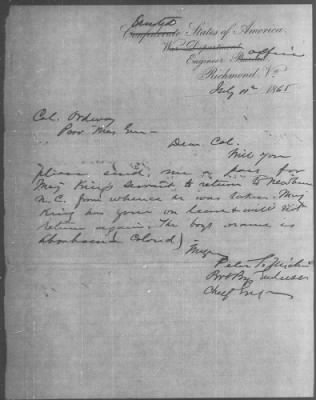 United
Confederate States of America
War Department office
Engineer Bureau
Richmond, Va
July 11th 1865
Col. Ordway
Prov Mar Gen -
Dear Col.
Will you
please send me a pass for
Maj King's servant to return to Newbern
N.C. from whence he was taken. Maj
King has gone on leave & will not
return again. The boy's name is
Abraham (Colored)
Peter S. Michie
Bvt Brig
Chief Engr